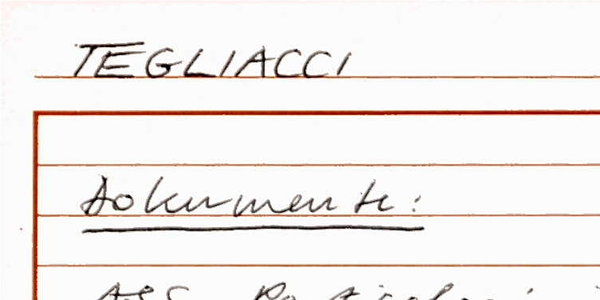 TEGLIACCI
Dokumente: